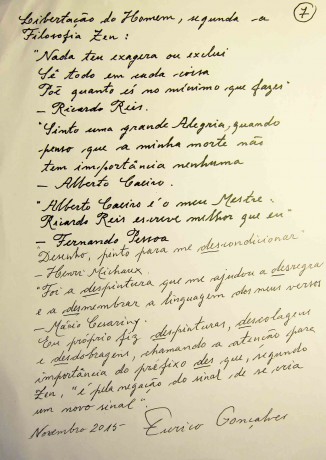 Libertação do Homem, segundo a
7
Filosofia Zen:
"Nada teu exagera ou exclui
Sê todo em cada coisa
Põe quanto és no mínimo que fazes"
– Ricardo Reis.
"Sinto uma grande Alegria, quando
penso que a minha morte não
tem importância nenhuma
– Alberto Caeiro.
"Alberto Caeiro é o meu Mestre.
Ricardo Reis escreve melhor que eu"
– Fernando Pessoa
"Desenho, pinto para me descondicionar"
– Henri Michaux.
"Foi a despintura que me ajudou a desregra
e a desmembrar a linguagem dos meus versos
– Mário Cesariny.
Eu próprio fiz despinturas, descolagens
e desdobragens, chamando a atenção para
importância do préfixo des que, segundo
Zen, "é pela negação do sinal de se cria
um novo sinal".
Novembro 2015- Eurico Gonçalves